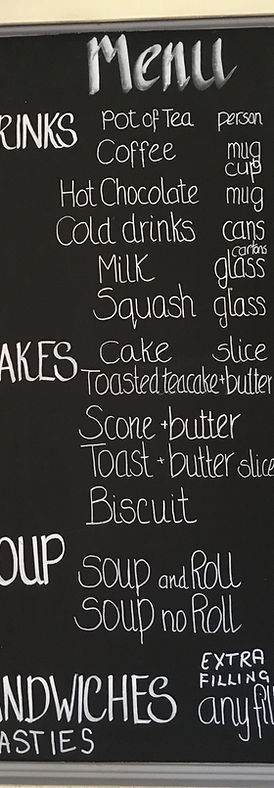 Menu
RINKS Pot of Tea person
Coffee mug
cup
Hot Chocolate mug
Cold drinks cans
cartons
Milk glass
Squash glass
AKES Cake slice
Toasted teacake + butter
Scone + butter
Toast + butter slice
Biscuit
OUP Soup and Roll
Soup no Roll
EXTRA
FILLING
NDWICHES any fil
ASTIES